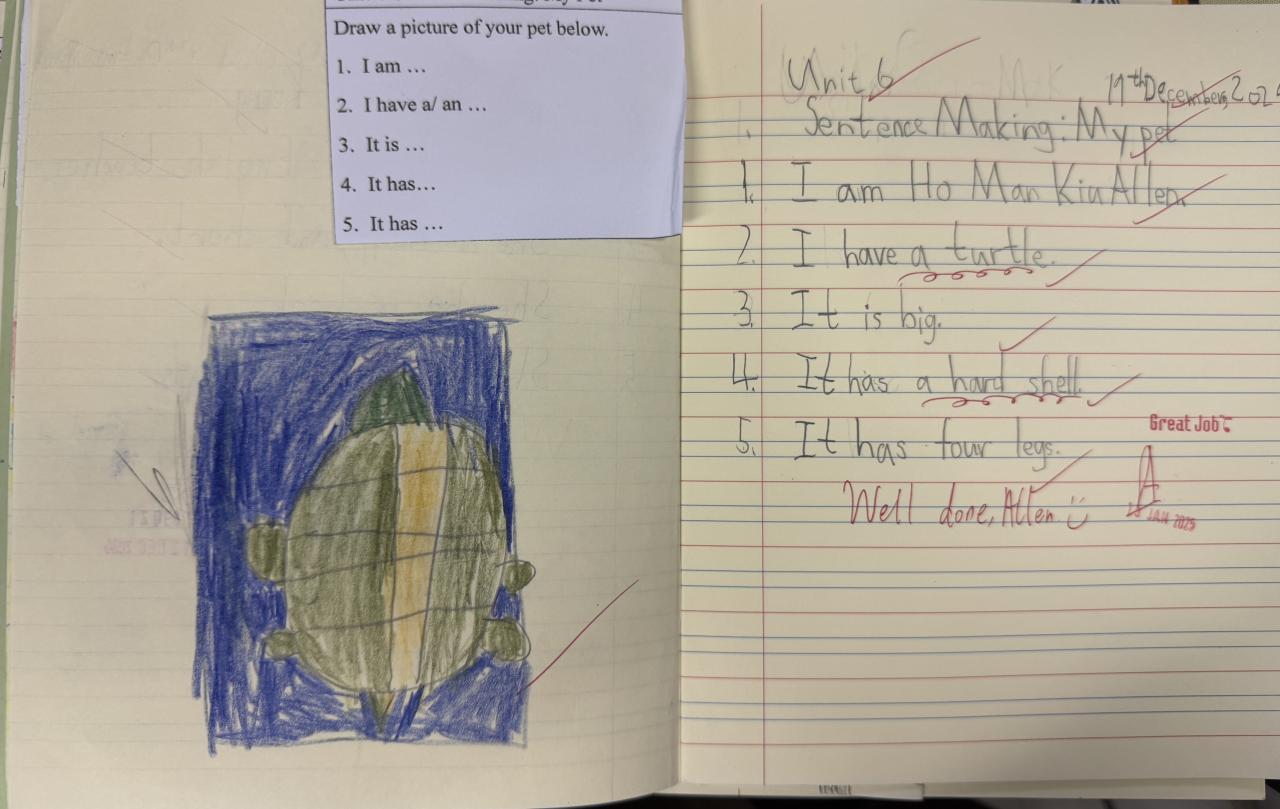 Draw a picture of your pet below.
1. I am ...
2. I have a/ an ...
3. It is ...
4. It has...
5. It has ...
Unit 6
19th December, 202
Sentence Making: My pet
1. I am Ho Man Kiu Allen.
2. I have a turtle.
3. It is big.
4. It has a hard shell.
5. It has four legs.
Great Job
Well done, Allen
A
JAN 2025